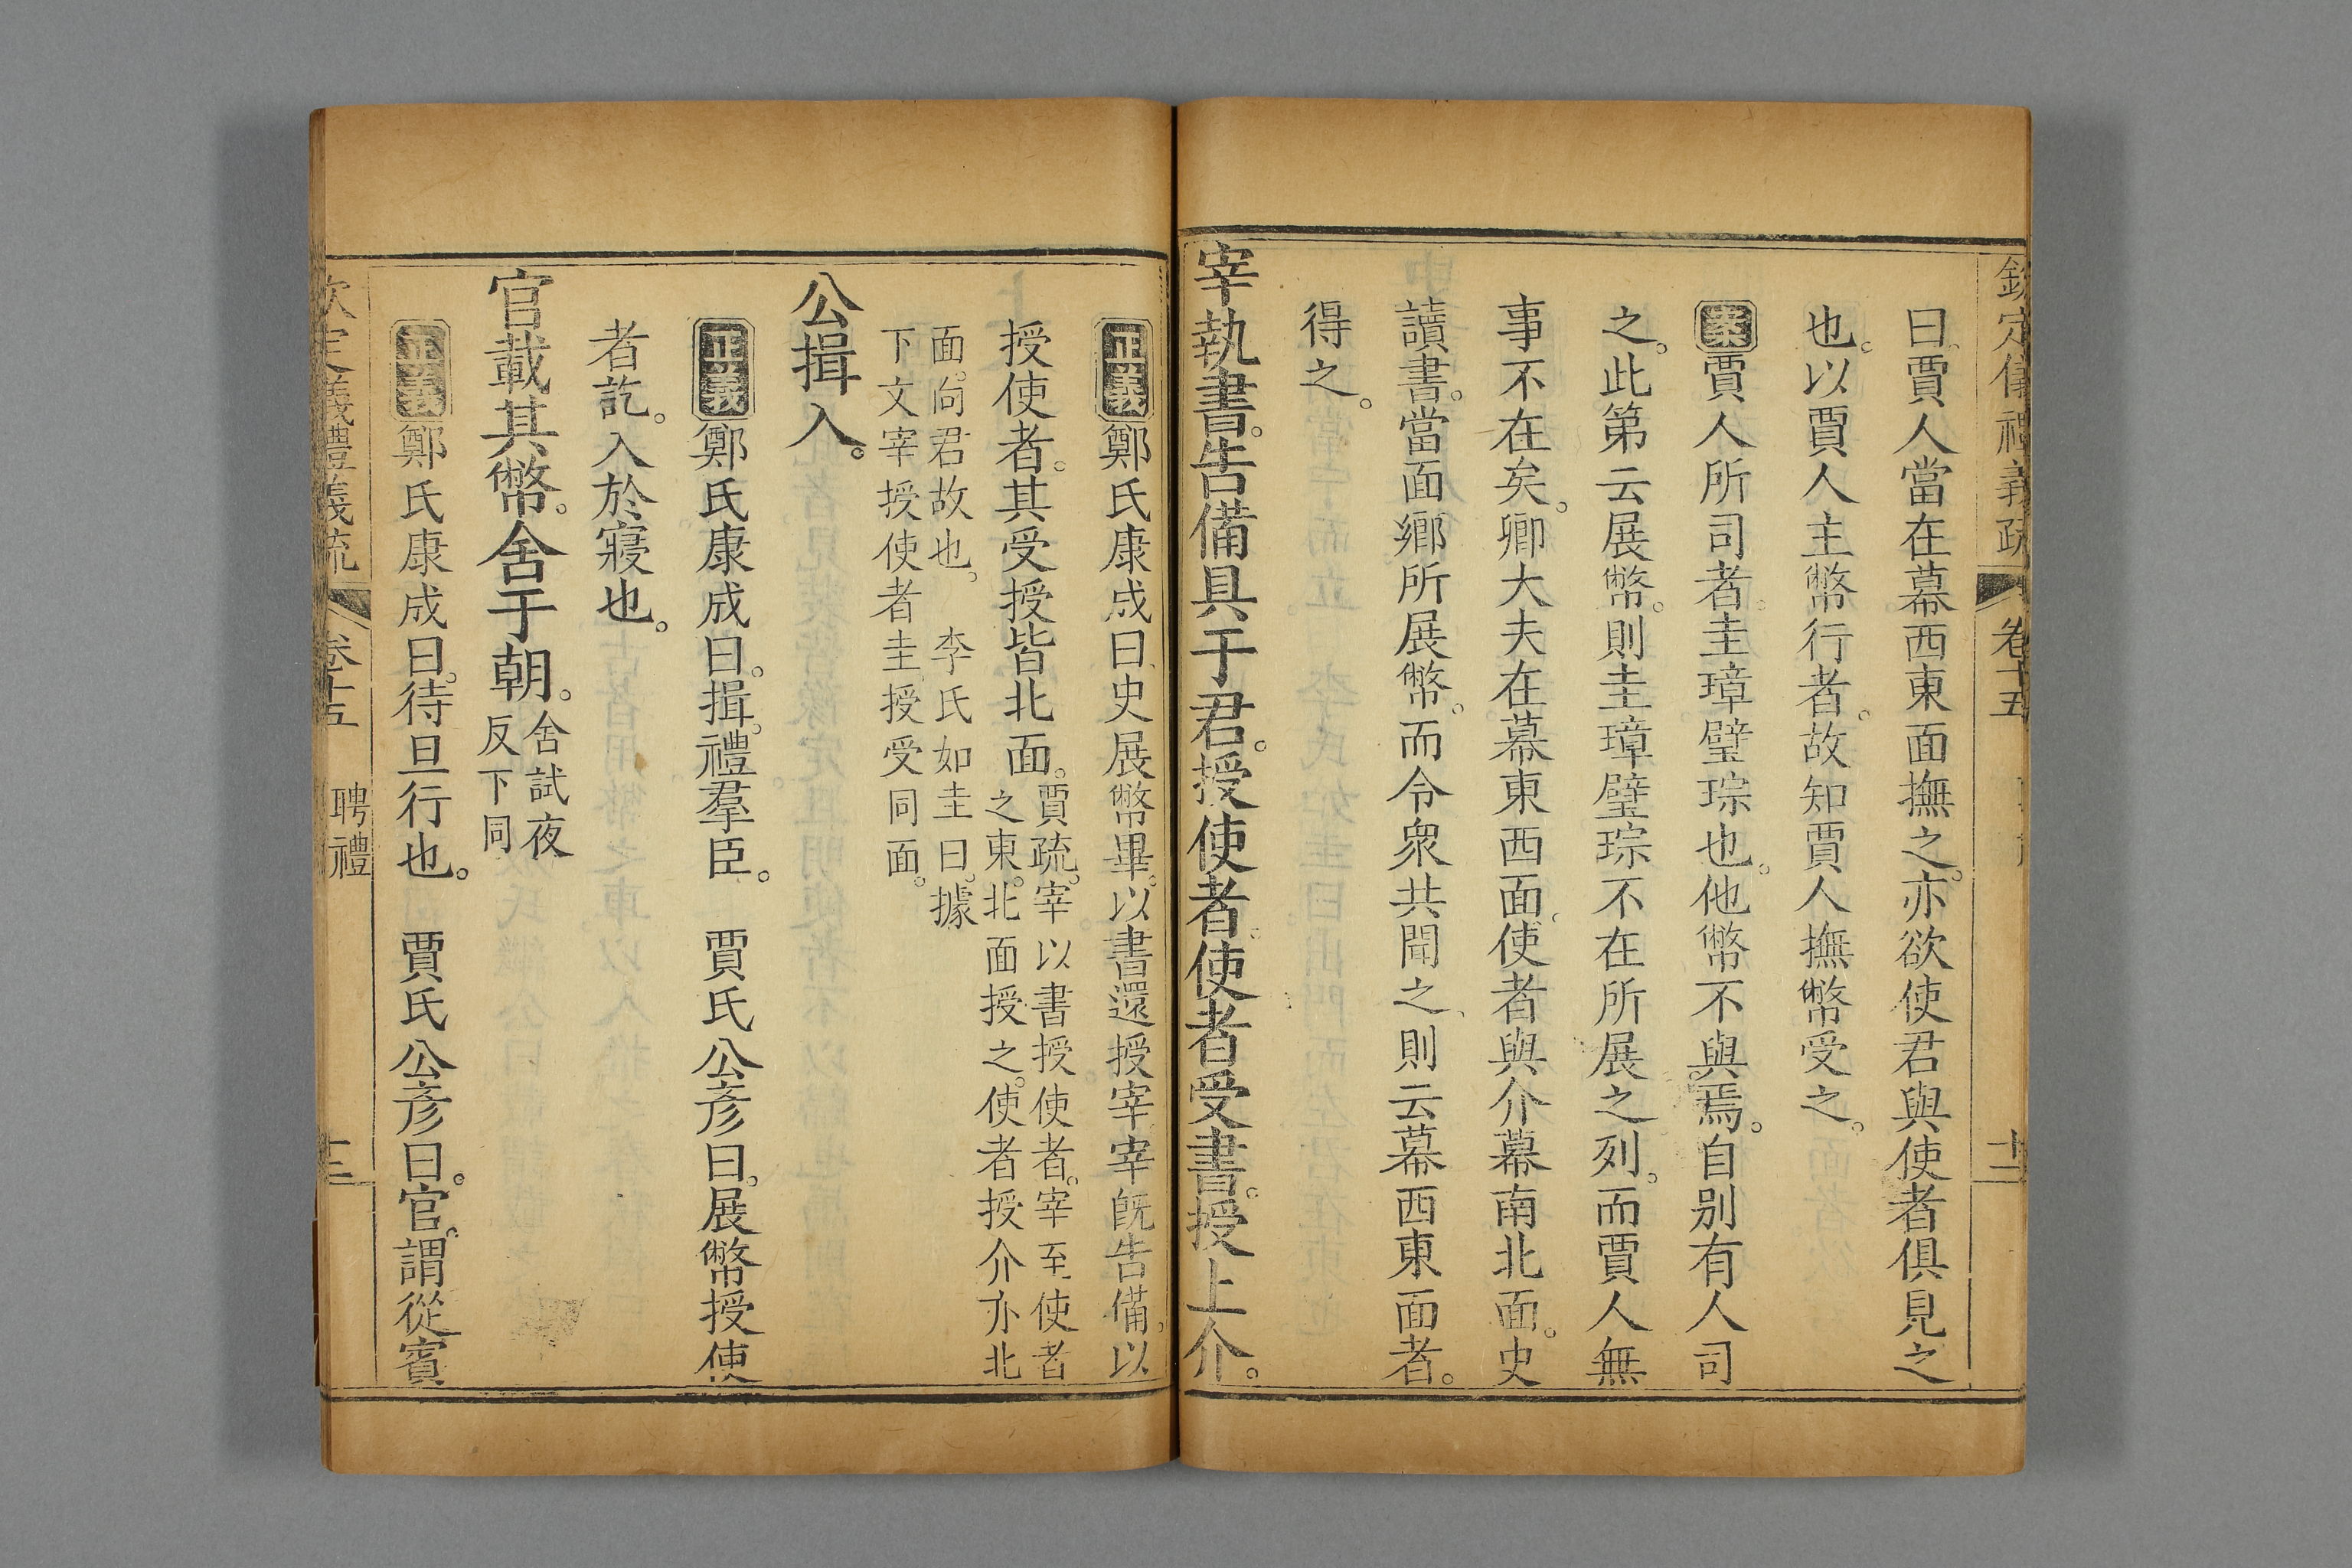 欽定儀禮義疏 卷十五 十二
曰賈人當在幕西東面撫之亦欲使君與使者俱見之
也以賈人主幣行者故知賈人撫幣受之
案賈人所司者圭璋璧琮也他幣不與焉自别有人司
之此第云展幣則圭璋璧琮不在所展之列而賈人無
事不在矣卿大夫在幕東西面使者與介幕南北面史
讀書當面鄉所展幣而令衆共聞之則云幕西東面者
得之
宰執書告備具于君授使者使者受書授上介
正義鄭氏康成曰史展幣畢以書還授宰宰旣告備以
授使者其受授皆北面賈疏宰以書授使者宰至使者
之東北面授之使者授介亦北
面向君故也 李氏如圭曰據
下文宰授使者圭授受同面
公揖入
正義鄭氏康成曰揖禮羣臣 賈氏公彥曰展幣授使
者訖入於寢也
官載其幣舍于朝舍試夜
反下同
正義鄭氏康成曰待旦行也 賈氏公彥曰官謂從賓
欽定義禮義疏 卷十五 聘禮 十三